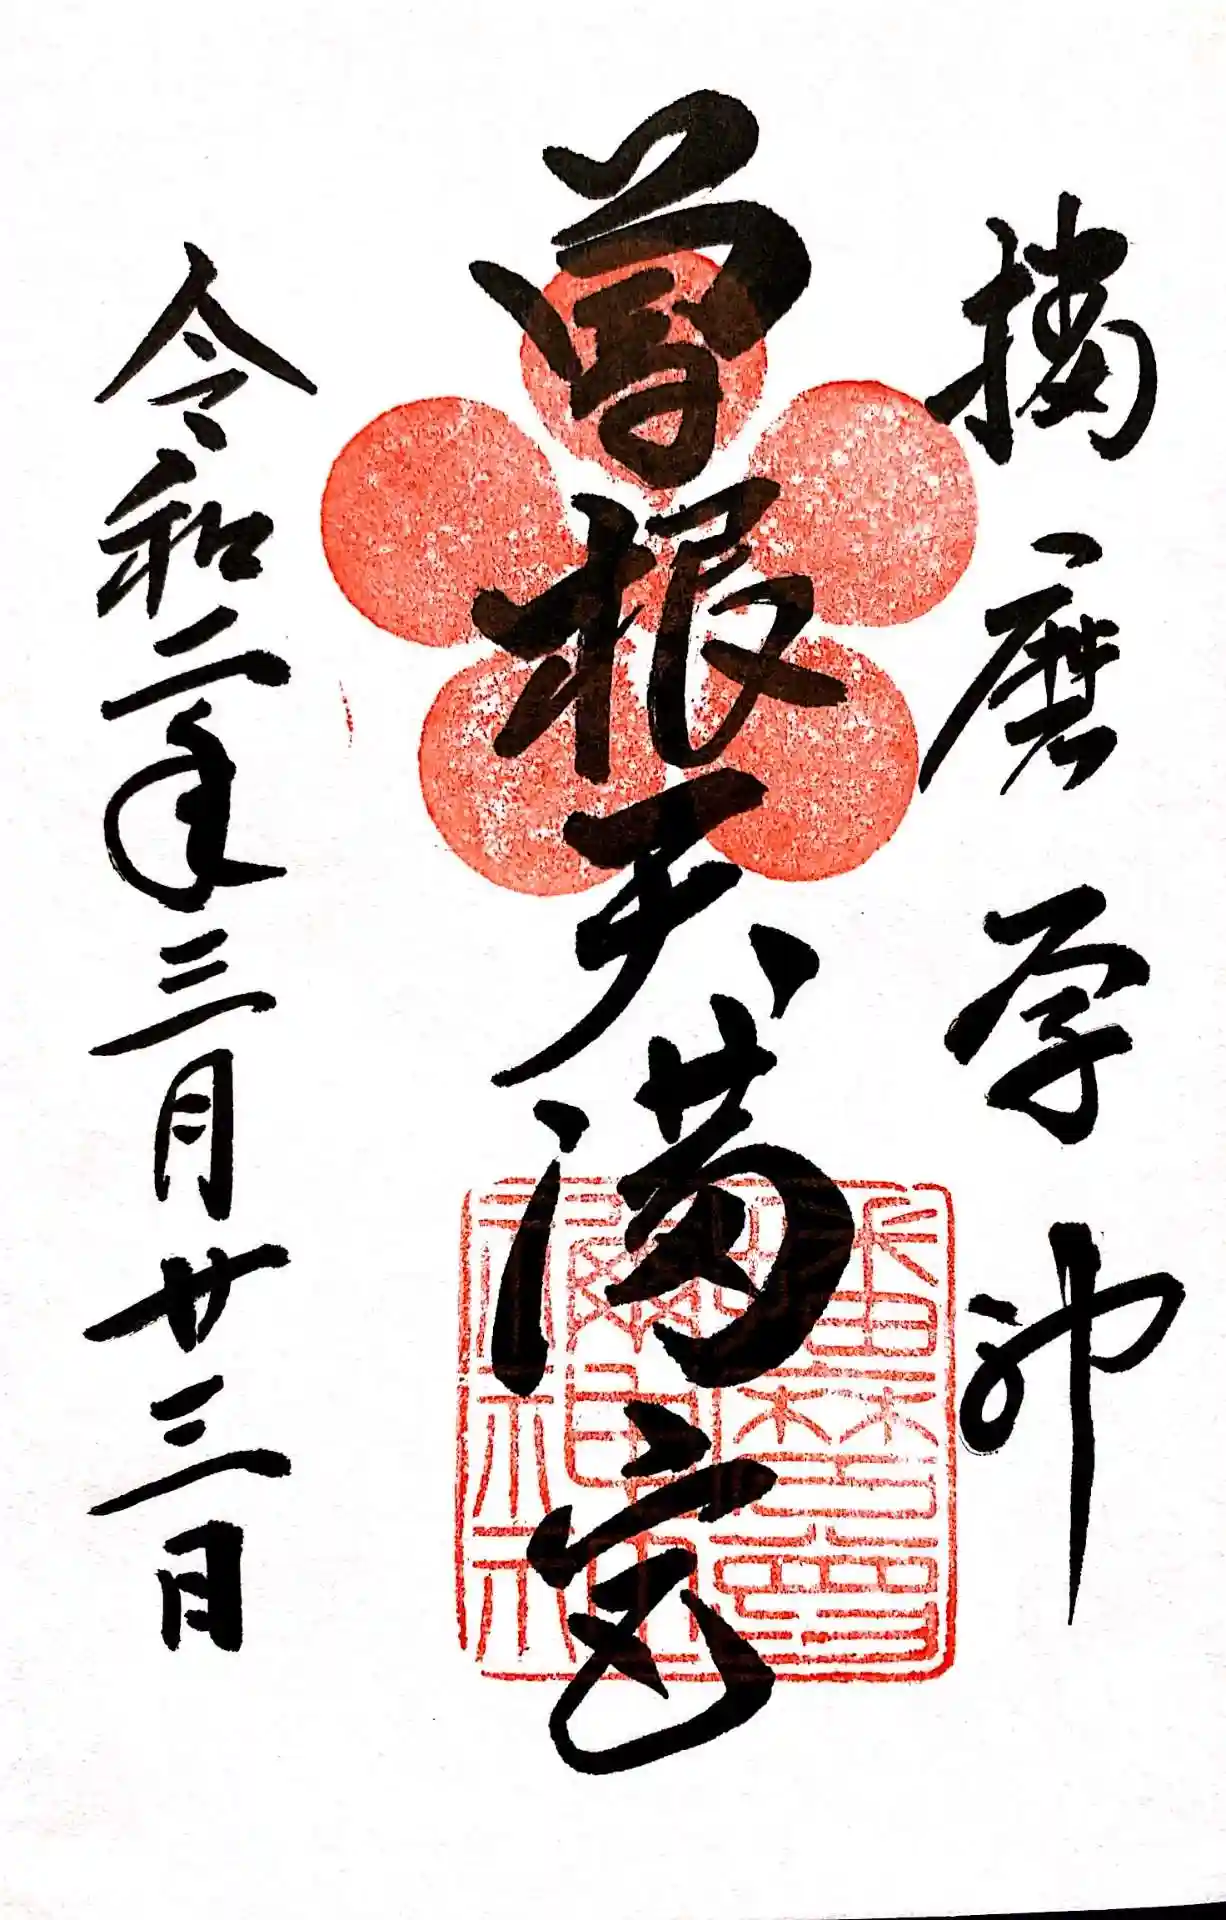 播磨学神
曽根天満宮
令和二年三月廿三日